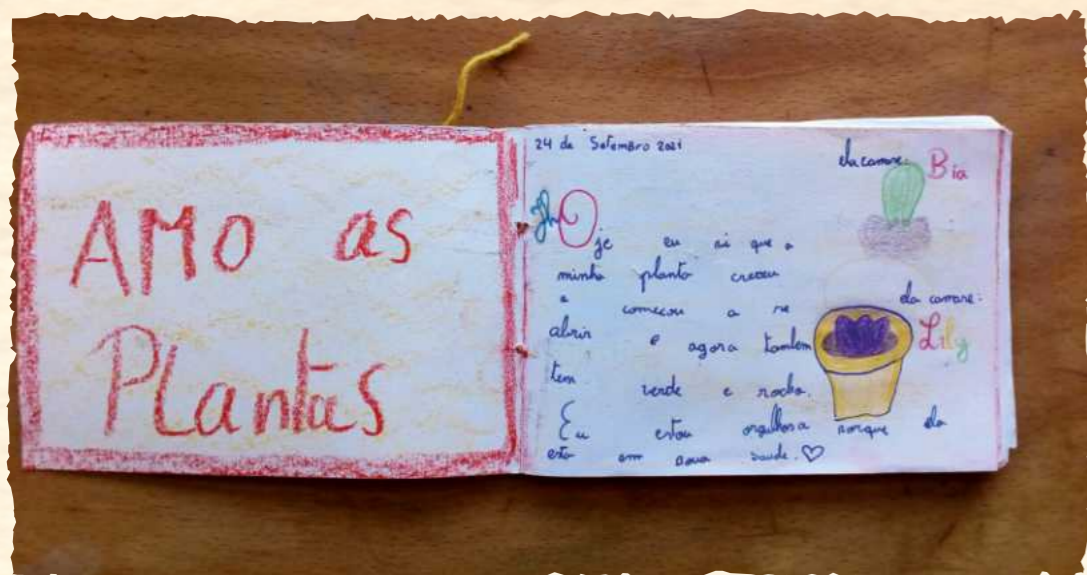 AMO as
Plantas
24 de Setembro 2021
ela camase: Bia
Oje eu vi que a
minha planta creceu
e começou a se
abrir e agora tambem
tem verde e rocho.
ela camase:
Lily
Eu estou orgulhosa porque ela
esta em saude. ♡